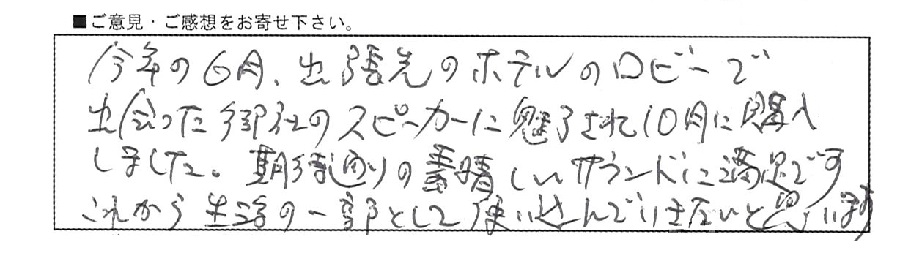 ■ご意見・ご感想をお寄せ下さい。
今年の6月、出張先のホテルのロビーで
出会った御社のスピーカーに魅了されて10月に購入
しました。期待通りの素晴しいサウンドに満足です
これから生活の一部として使い込んでいきたいと思います